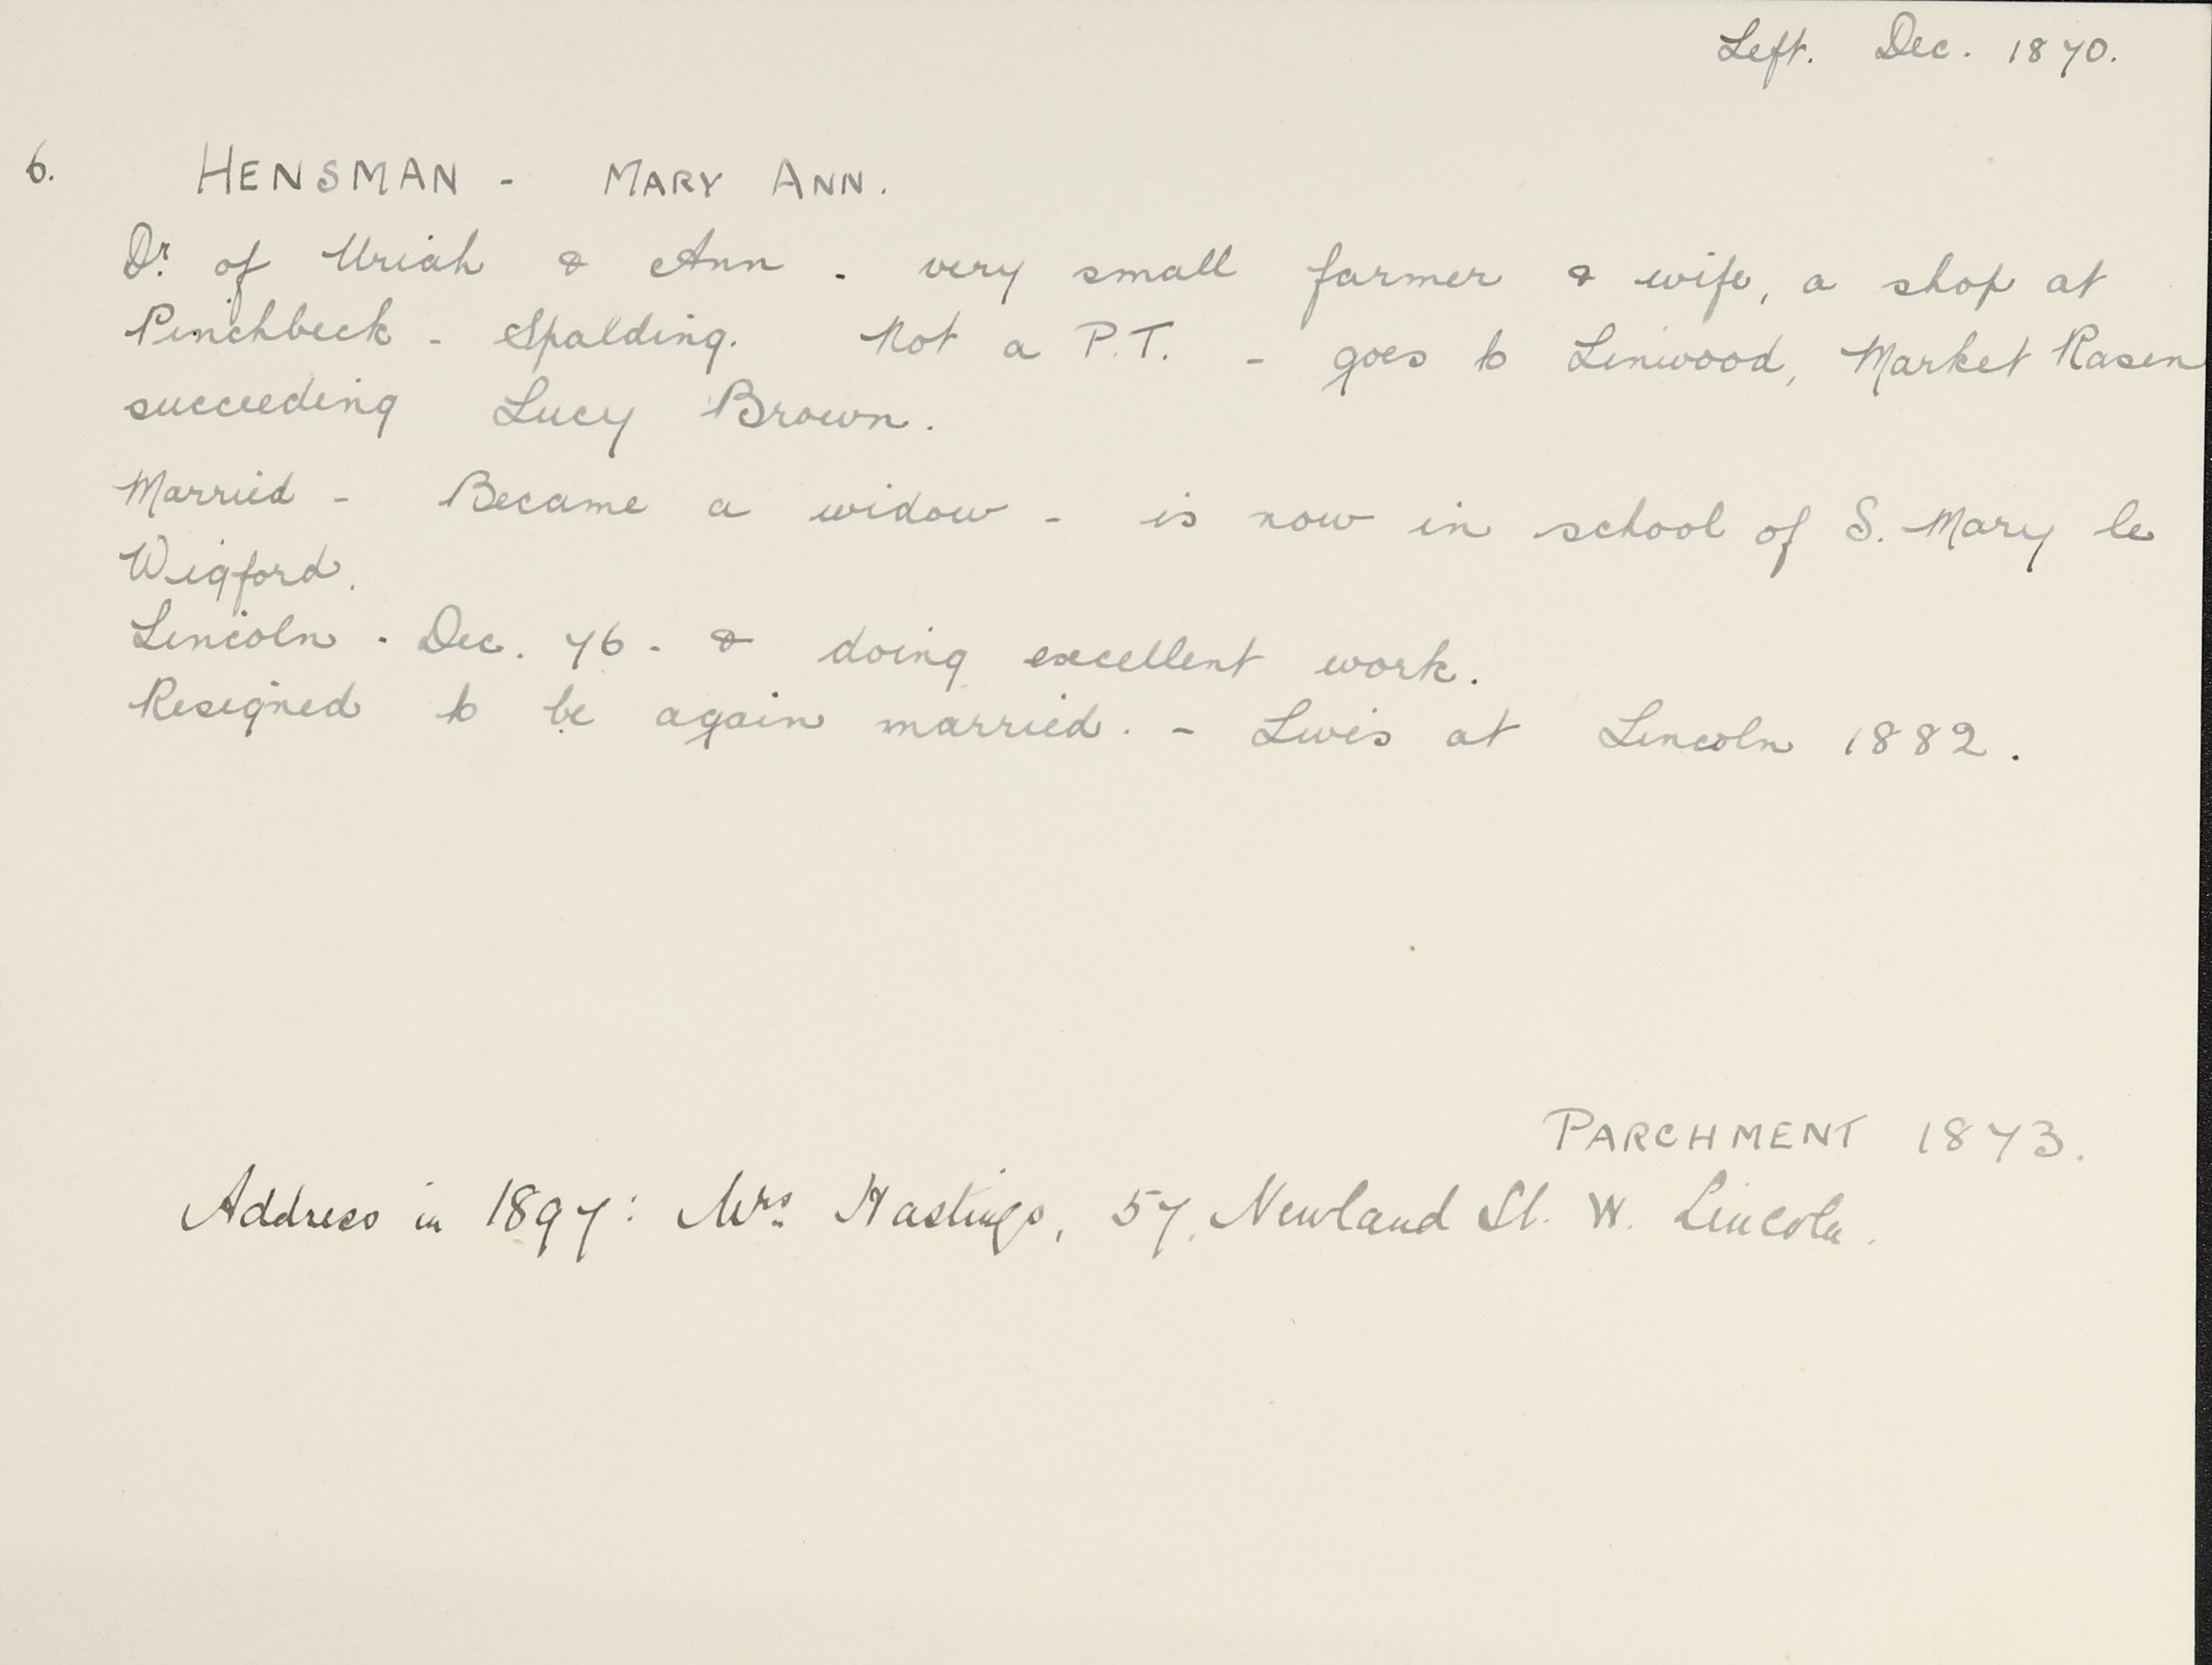 Left. Dec. 1870.
6. HENSMAN - MARY ANN.
Dr. of Uriah & Ann - very small farmer & wife, a shop at
Pinchbeck - Spalding. Not a P.T. - goes to Linwood, Market Rasen
succeeding Lucy Brown.
Married - Became a widow - is now in school of S. Mary le
Wigford.
Lincoln - Dec. 76 - & doing excellent work.
Resigned to be again married. - Lives at Lincoln 1882.
PARCHMENT 1873.
Address in 1897: Mrs. Hastings, 57, Newland St. W. Lincoln.